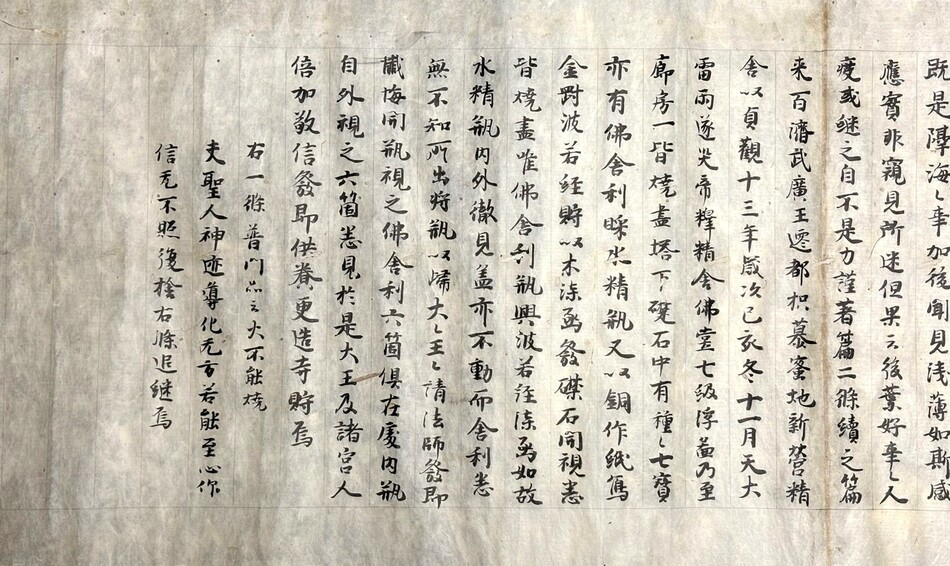 既是障海〻事加後聞見浅薄如斯感
應實非窺見所迷但果云後葉好事〻人
瘦或继之自不是力謹著篇二條續之篇
来百濟武廣王遷都枳慕蜜地新營精
舍以貞觀十三年歲次己亥冬十一月天大
雷雨遂災帝釋精舍佛堂七級浮啚乃至
廊房一皆燒盡塔下礎石中有種〻七寶
亦有佛舍利睬水精瓶又以銅作纸寫
金罰波若經貯以木漆函發礎石開視悉
皆燒盡唯佛舍利瓶與波若經漆函如故
水精瓶内外徹見盖亦不動而舍利悉
無不知所出将瓶以歸大〻王〻請法師發即
懺悔開瓶視之佛舍利六箇俱在處内瓶
自外視之六箇悉見於是大王及諸宮人
倍加敬信發即供養更造寺貯焉
右一條普門品云火不能燒
夫聖人神迹導化无方若能至心仰
信无不照復捨右條追继焉